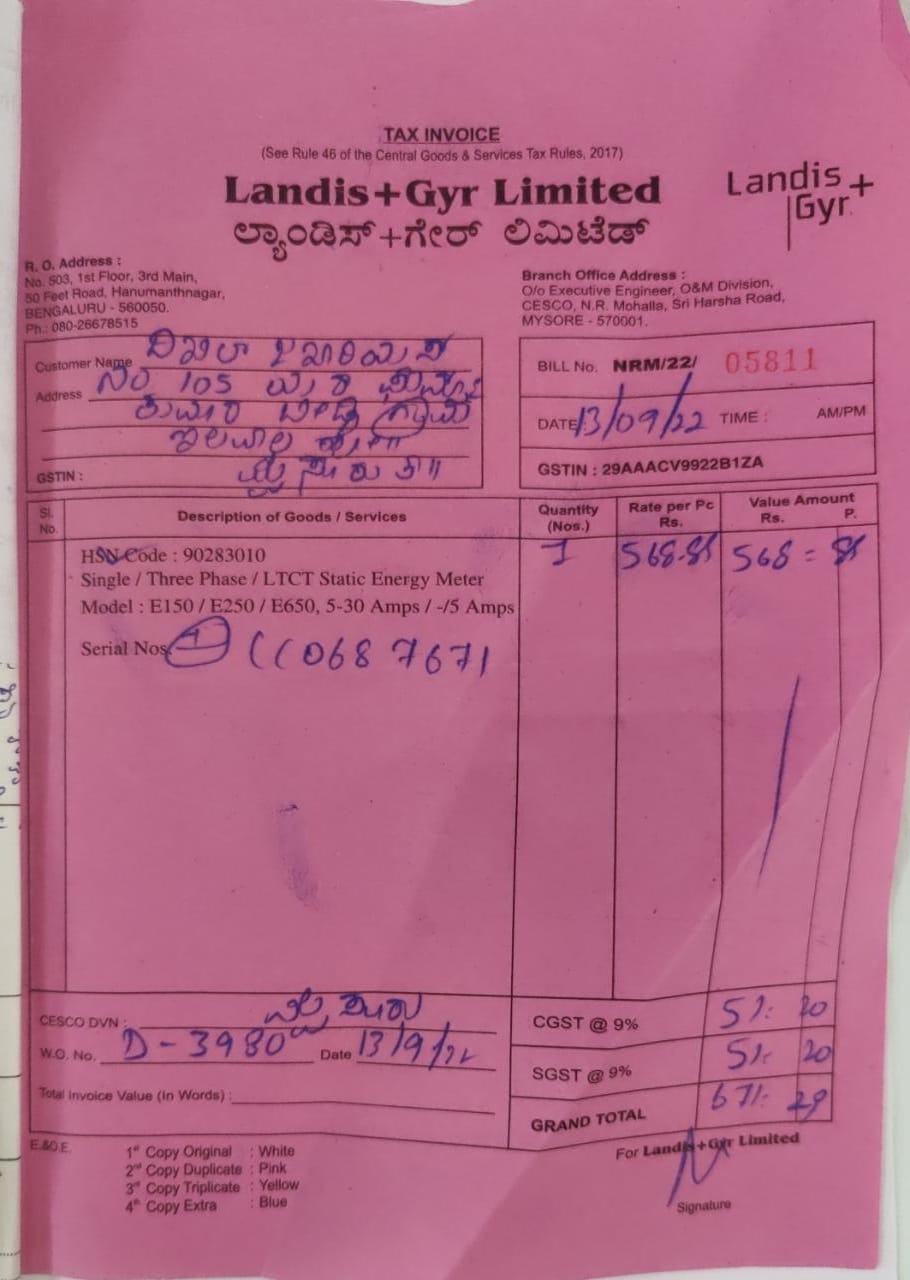 TAX INVOICE
(See Rule 46 of the Central Goods & Services Tax Rules, 2017)
Landis+Gyr Limited
ಲ್ಯಾಂಡಿಸ್+ಗೇರ್ ಲಿಮಿಟೆಡ್
Landis+
Gyr
R. O. Address :
No. 503, 1st Floor, 3rd Main,
50 Feet Road, Hanumanthnagar,
BENGALURU - 560050.
Ph.: 080-26678515
Branch Office Address :
O/o Executive Engineer, O&M Division,
CESCO, N.R. Mohalla, Sri Harsha Road,
MYSORE - 570001.
Customer Name
Address ನಂ 105
ಗ್ರಾಮ
ಇಲವಾಲ
GSTIN :
BILL No. NRM/22/ 05811
DATE 13/09/22 TIME : AM/PM
GSTIN : 29AAACV9922B1ZA
Sl. No. Description of Goods / Services Quantity (Nos.) Rate per Pc Rs. Value Amount Rs. P.
HSN Code : 90283010 1 568.85 568 = 85
Single / Three Phase / LTCT Static Energy Meter
Model : E150 / E250 / E650, 5-30 Amps / -/5 Amps
Serial Nos. 0687671
CESCO DVN :
W.O. No. D-3980 Date 13/9/22
Total Invoice Value (In Words) :
CGST @ 9% 51: 20
SGST @ 9% 51: 20
GRAND TOTAL 671: 29
E.&O.E.
1st Copy Original : White
2nd Copy Duplicate : Pink
3rd Copy Triplicate : Yellow
4th Copy Extra : Blue
For Landis+Gyr Limited
Signature